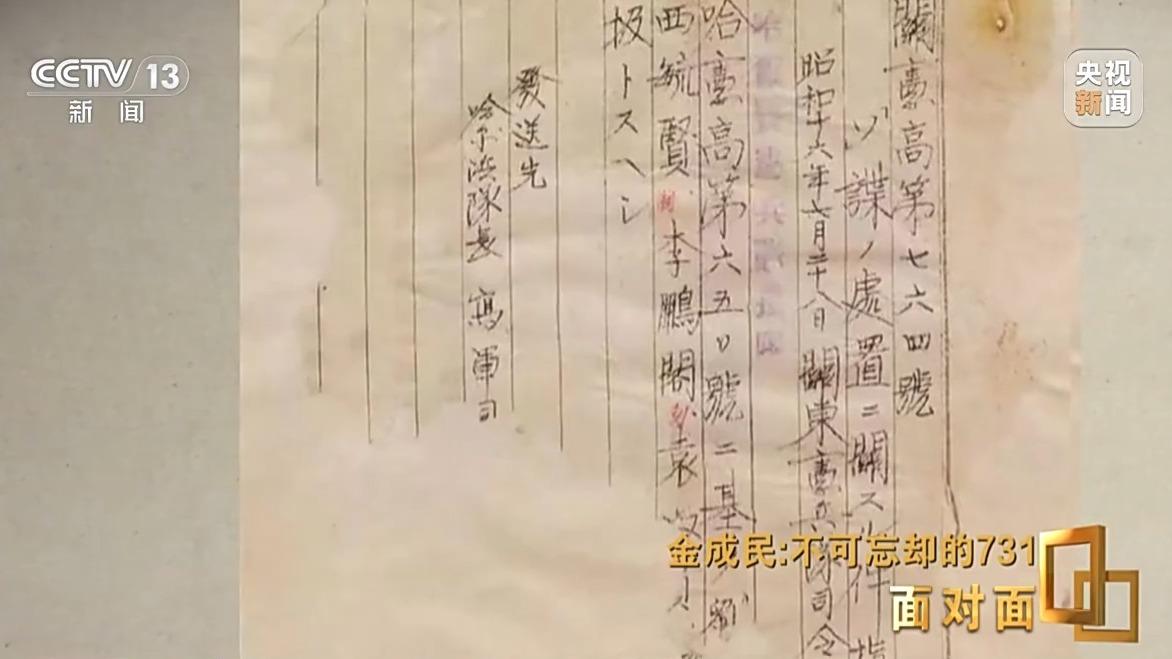 CCTV 13
新闻
央视
新闻
關憲高第七六四號
ソ諜ノ處置ニ關スル件 指
昭和十六年六月二十八日 關東憲兵隊司令
哈憲高第六五〇號ニ基
西毓賢 李鵬閣 袁
扱トスヘシ
發送先
哈尔浜隊長 寫 軍司
金成民:不可忘却的731
面对面